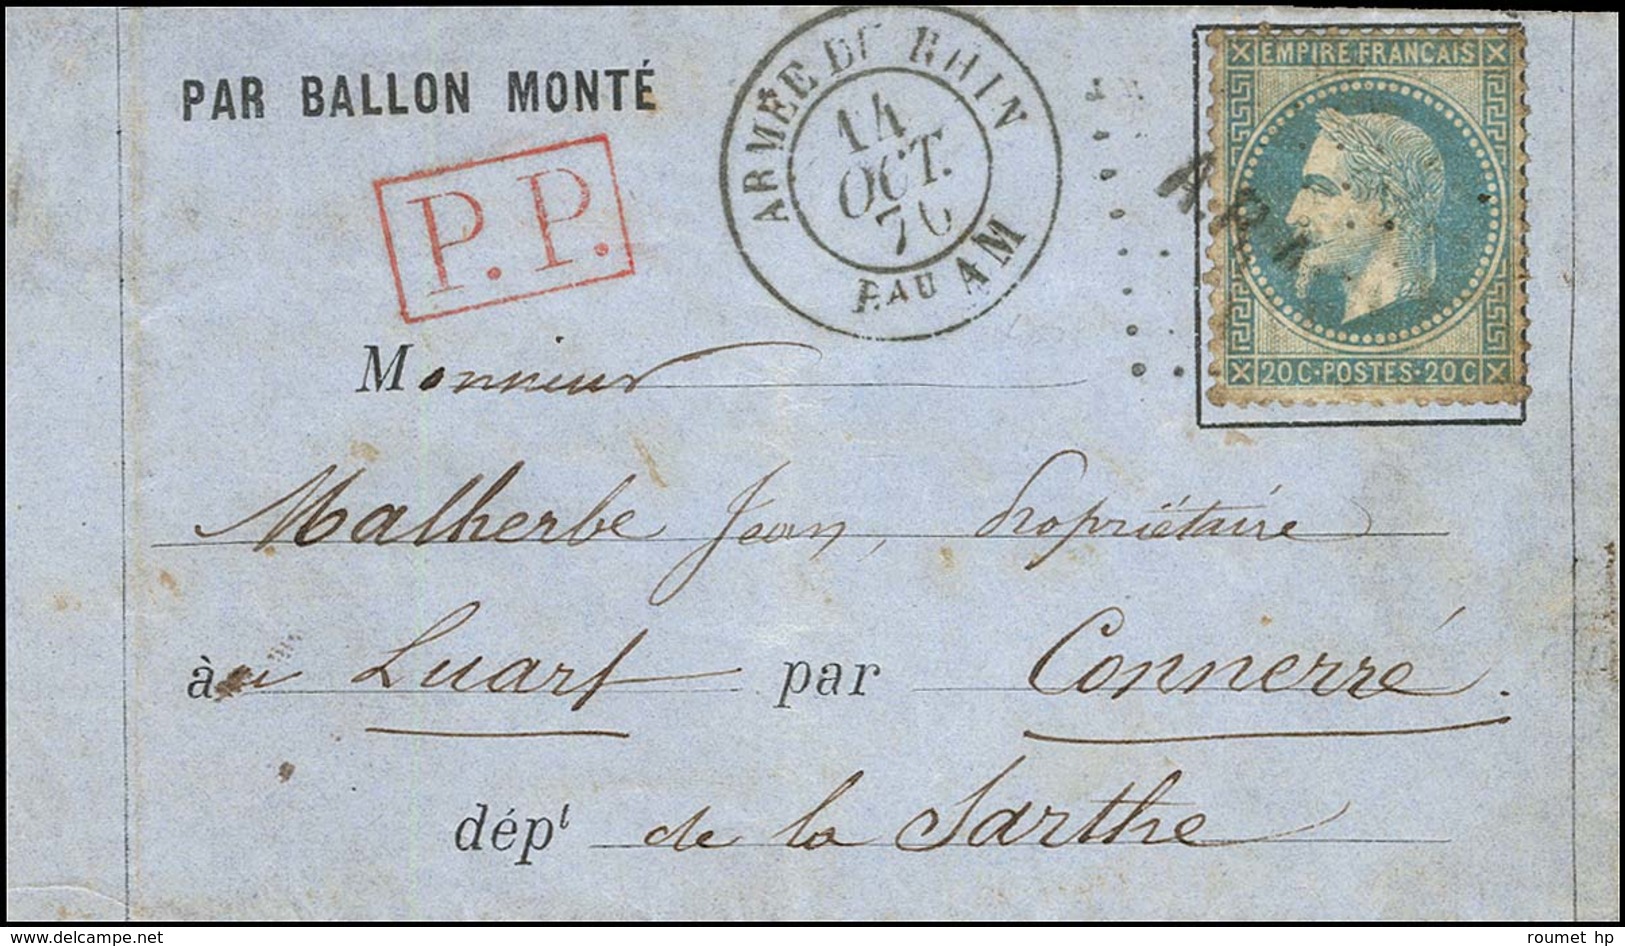 PAR BALLON MONTÉ
P.P.
ARMÉE DU RHIN
14
OCT.
70
B.AU AM
EMPIRE FRANCAIS
20C·POSTES·20C
Monsieur
Malherbe Jean, Propriétaire
à u Luart par Connerré.
dépt de la Sarthe
www.delcampe.net
roumet hp